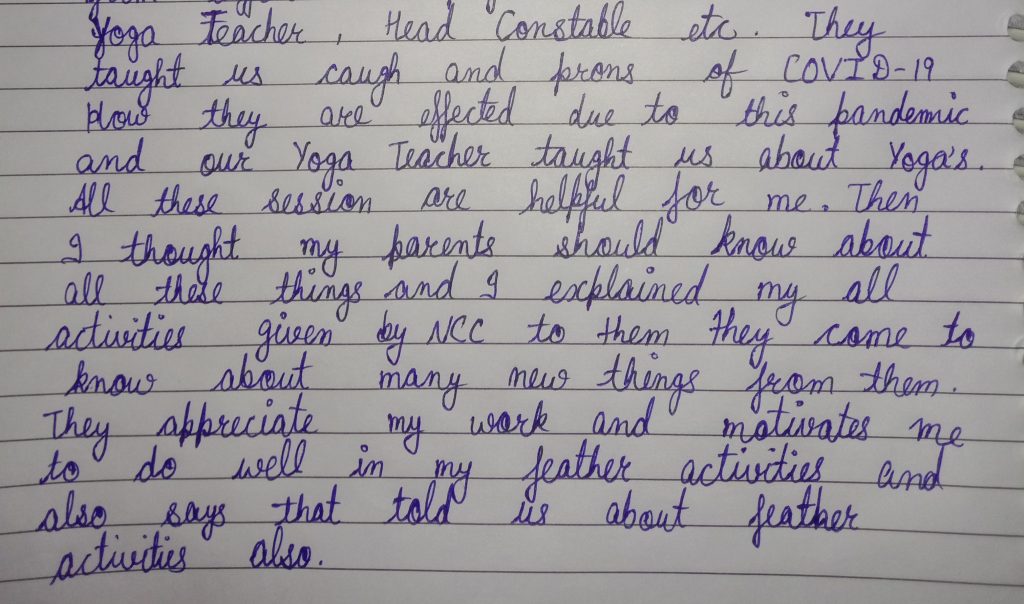 Yoga Teacher, Head Constable etc. They
taught us caugh and prons of COVID-19
How they are effected due to this pandemic
and our Yoga Teacher taught us about Yoga's.
All these session are helpful for me. Then
I thought my parents should know about
all these things and I explained my all
activities given by NCC to them they come to
know about many new things from them.
They appreciate my work and motivates me
to do well in my feather activities and
also says that told us about feather
activities also.